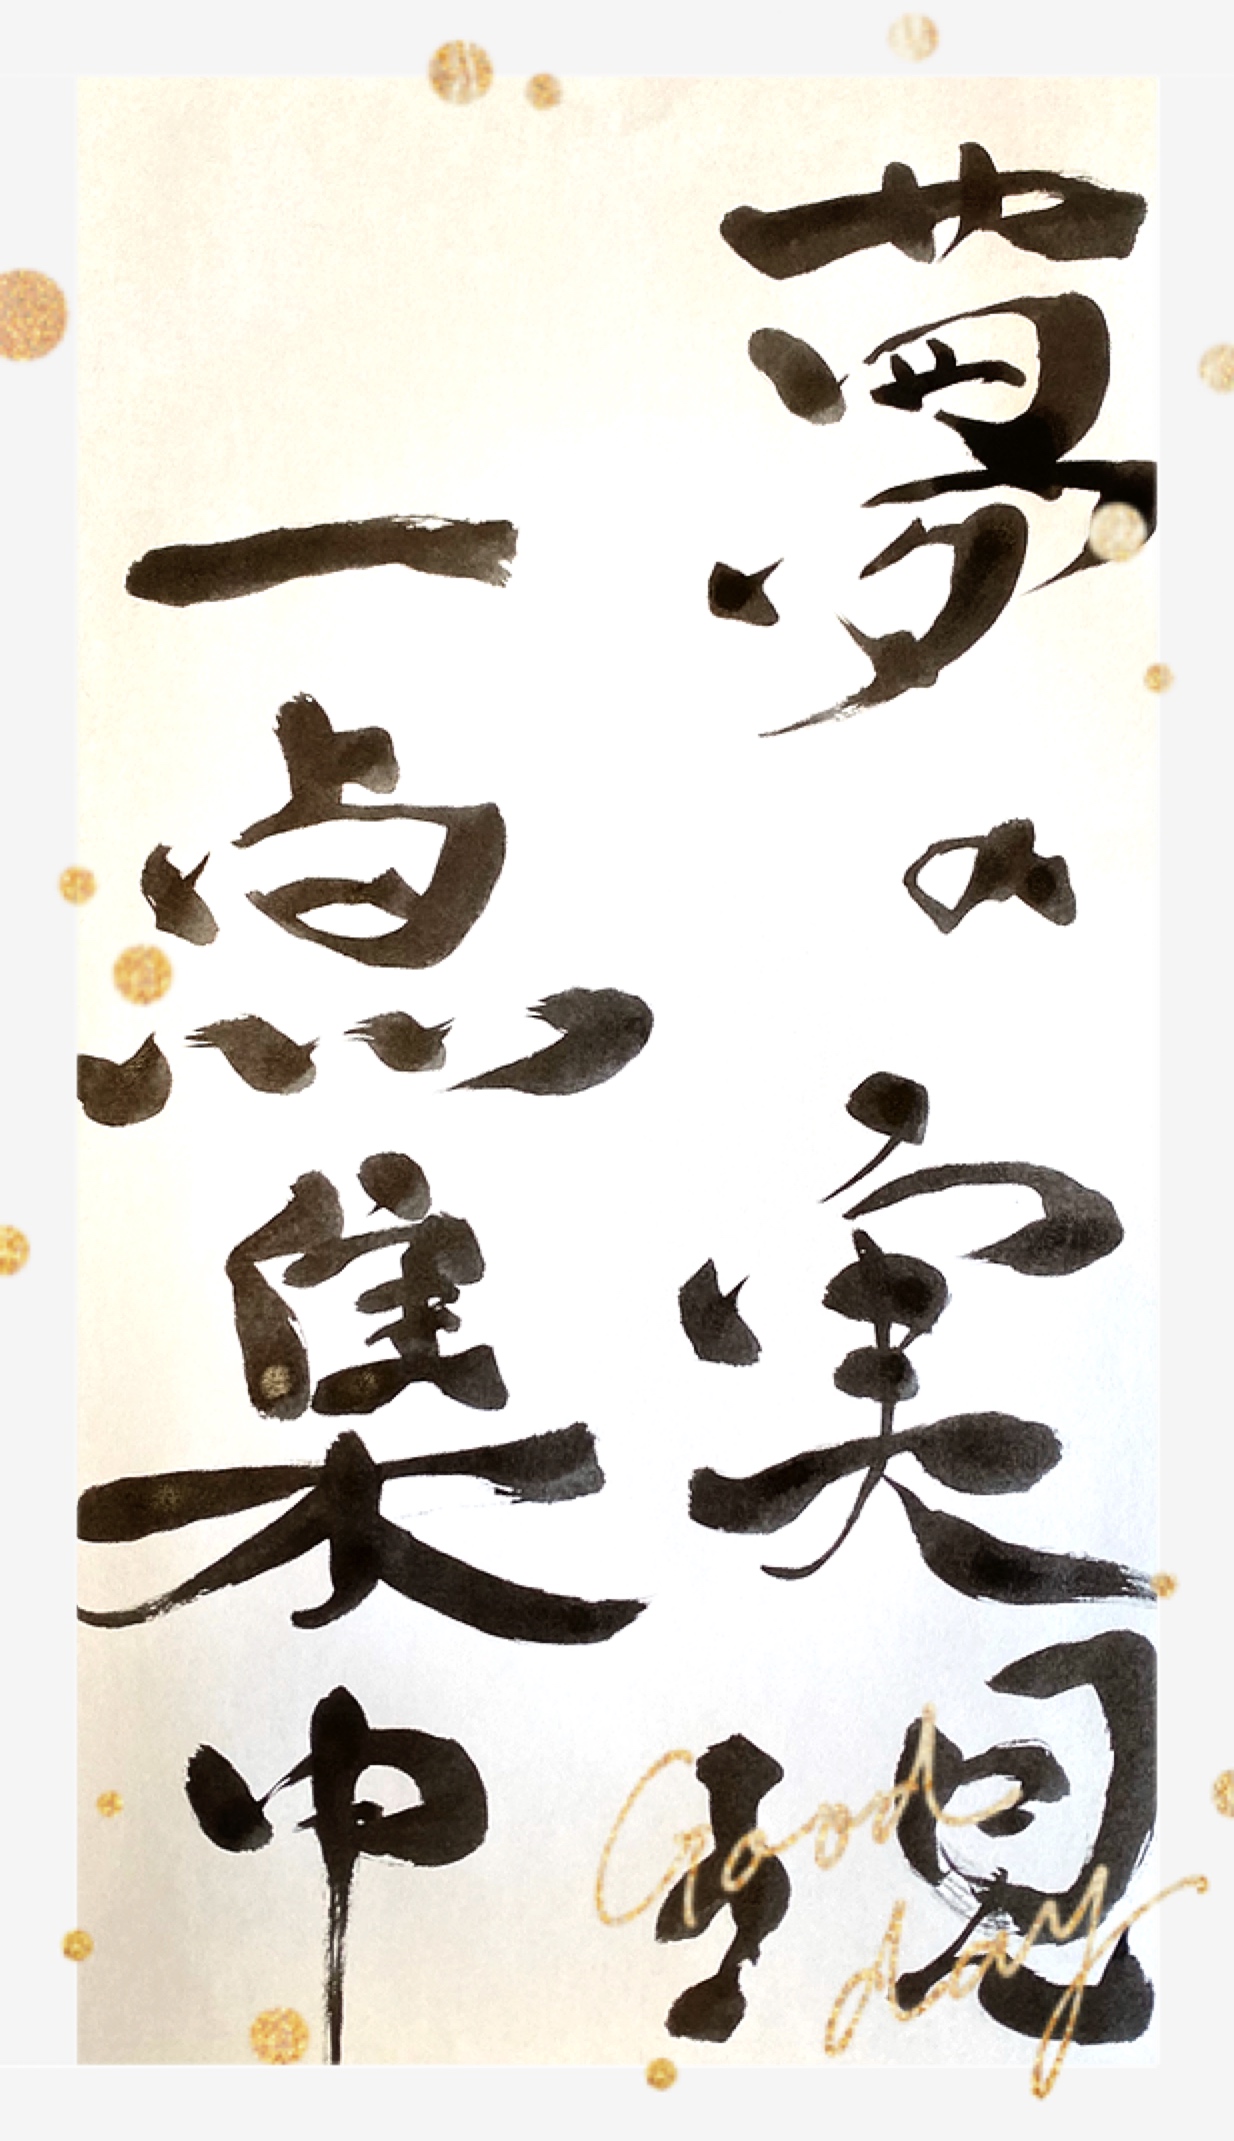 夢の実現
一点集中
Good
day